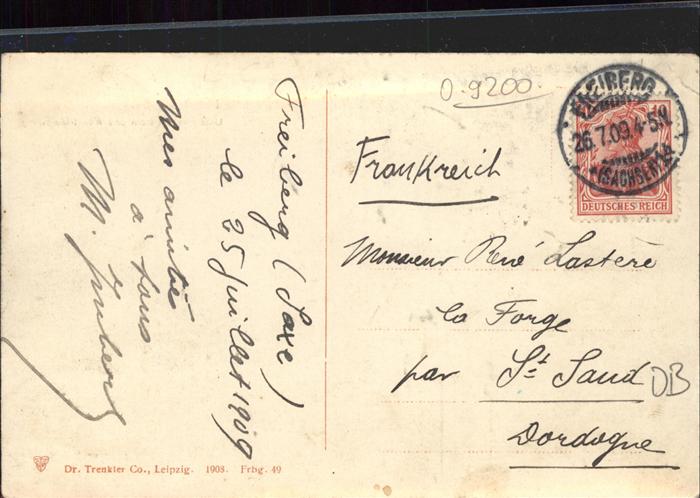 Freiberg (Saxe)
le 25 juillet 1909
Mes amitiés
à tous
M.
O-9200.
FREIBERG
26.7.09.4-5N.
(SACHSEN)
DEUTSCHES REICH
Frankreich
Monsieur René Lastère
La Forge
par St Saud
Dordogne
DB
Dr. Trenkler Co., Leipzig. 1908. Frbg. 49